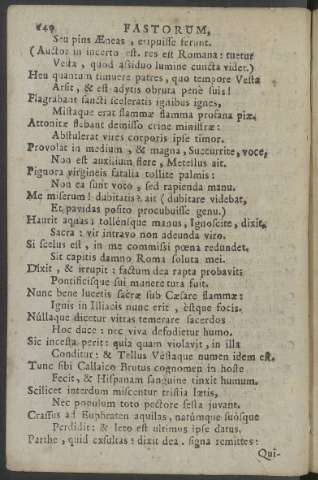 240 FASTORUM,
Seu pius Æneas, eripuisse ferunt.
(Auctor in incerto est. res est Romana: tuetur
Vesta, quod assiduo lumine cuncta videt.)
Heu quantum timuere patres, quo tempore Vesta
Arsit, & est adytis obruta pene suis!
Flagrabant sancti sceleratis ignibus ignes,
Mistaque erat flammæ flamma profana piæ.
Attonitæ flebant demisso crine ministræ:
Abstulerat vires corporis ipse timor.
Provolat in medium, & magna, Succurrite, voce,
Non est auxilium flere, Metellus ait.
Pignora virgineis fatalia tollite palmis:
Non ea sunt voto, sed rapienda manu.
Me miserum! dubitatis? ait (dubitare videbat,
Et pavidas posito procubuisse genu.)
Haurit aquas: tollensque manus, Ignoscite, dixit,
Sacra: vir intravo non adeunda viro.
Si scelus est, in me commissi pœna redundet,
Sit capitis damno Roma soluta mei.
Dixit, & irrupit: factum dea rapta probavit;
Pontificisque sui munere tuta fuit.
Nunc bene lucetis sacræ sub Cæsare flammæ:
Ignis in Illiacis nunc erit, estque focis.
Nullaque dicetur vittas temerare sacerdos
Hoc duce: nec viva defodietur humo.
Sic incesta perit: quia quam violavit, in illa
Conditur: & Tellus Vestaque numen idem est.
Tunc sibi Callaico Brutus cognomen in hoste
Fecit, & Hispanam sanguine tinxit humum.
Scilicet interdum miscentur tristia lætis,
Nec populum toto pectore festa juvant.
Crassus ad Euphraten aquilas, natumque suosque
Perdidit: & leto est ultimus ipse datus.
Parthe, quid exsultas? dixit dea. signa remittes:
Qui-